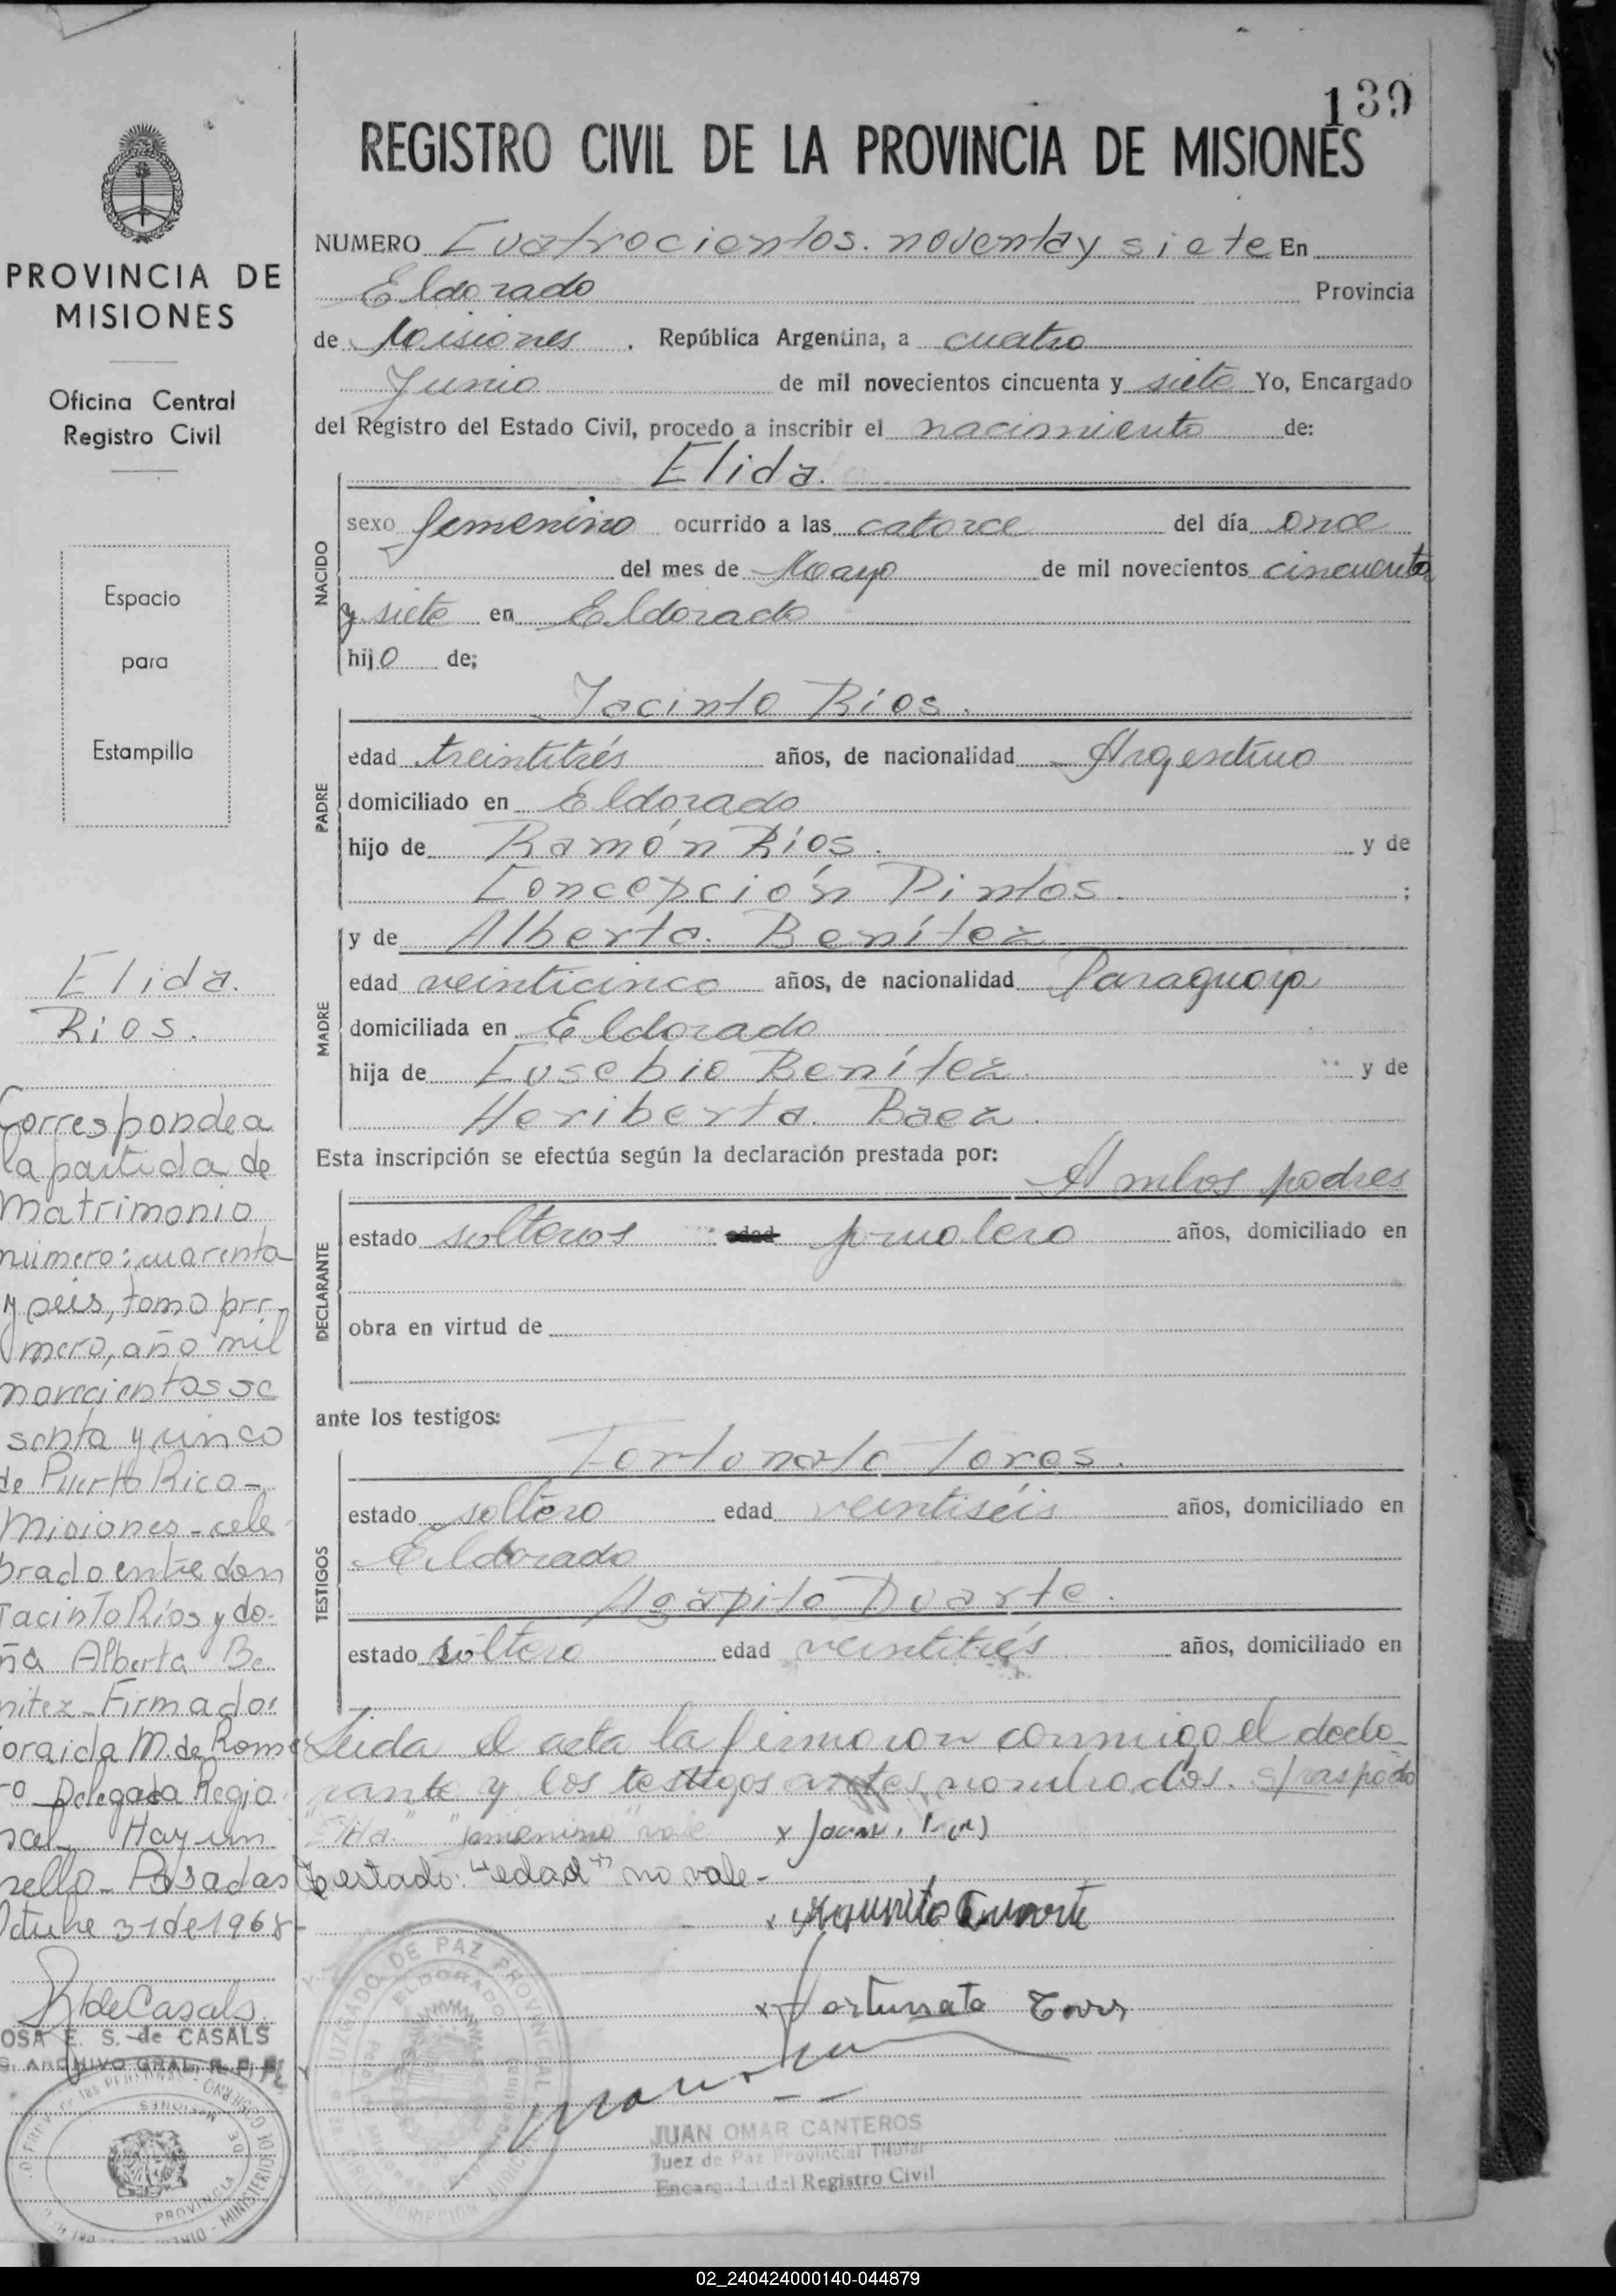 139
REGISTRO CIVIL DE LA PROVINCIA DE MISIONES
PROVINCIA DE
MISIONES
Oficina Central
Registro Civil
Espacio
para
Estampilla
Elida.
Rios.
Corresponde a
la partida de
Matrimonio
número: cuarenta
y seis, tomo pri-
mero, año mil
novecientos se
senta y cinco
de Puerto Rico-
Misiones-cele
brado entre don
Jacinto Ríos y do-
ña Alberta Be
nitez-Firmado:
oraida M. de Rome
ro Delegada Regio
nal- Hay un
sello- Posadas
Octubre 31 de 1968-
R de Casals
OSA E. S. de CASALS
ARCHIVO GRAL. R. P.
NUMERO Cuatrocientos. noventa y siete En
Eldorado Provincia
de Misiones . República Argentina, a cuatro
Junio de mil novecientos cincuenta y siete Yo, Encargado
del Registro del Estado Civil, procedo a inscribir el nacimiento de:
Elida.
NACIDO
sexo femenino ocurrido a las catorce del día once
del mes de Mayo de mil novecientos cincuenta
y siete en Eldorado
hijo de;
Jacinto Ríos.
PADRE
edad treintitrés años, de nacionalidad Argentino
domiciliado en Eldorado
hijo de Ramón Ríos. y de
Concepción Pintos. ;
MADRE
y de Alberta. Benítez
edad veinticinco años, de nacionalidad Paraguaya
domiciliada en Eldorado
hija de Eusebio Benítez. y de
Heriberta. Baez.
Esta inscripción se efectúa según la declaración prestada por:
Ambos padres
DECLARANTE
estado solteros edad jornalero años, domiciliado en
obra en virtud de
ante los testigos:
Fortunato Tores.
TESTIGOS
estado soltero edad veintiséis años, domiciliado en
Eldorado
Agapito Duarte.
estado soltero edad veintitrés años, domiciliado en
Leida el acta la firmaron conmigo el decla-
rante y los testigos antes nombrados. s/raspado
"femenino" vale
Testado: "edad" no vale-
x Duarte
x Fortunato Tores
JUZGADO DE PAZ PROVINCIAL
ELDORADO
JUAN OMAR CANTEROS
Juez de Paz Provincial Titular
Encargado del Registro Civil
PROVINCIA DE MISIONES
02_240424000140-044879